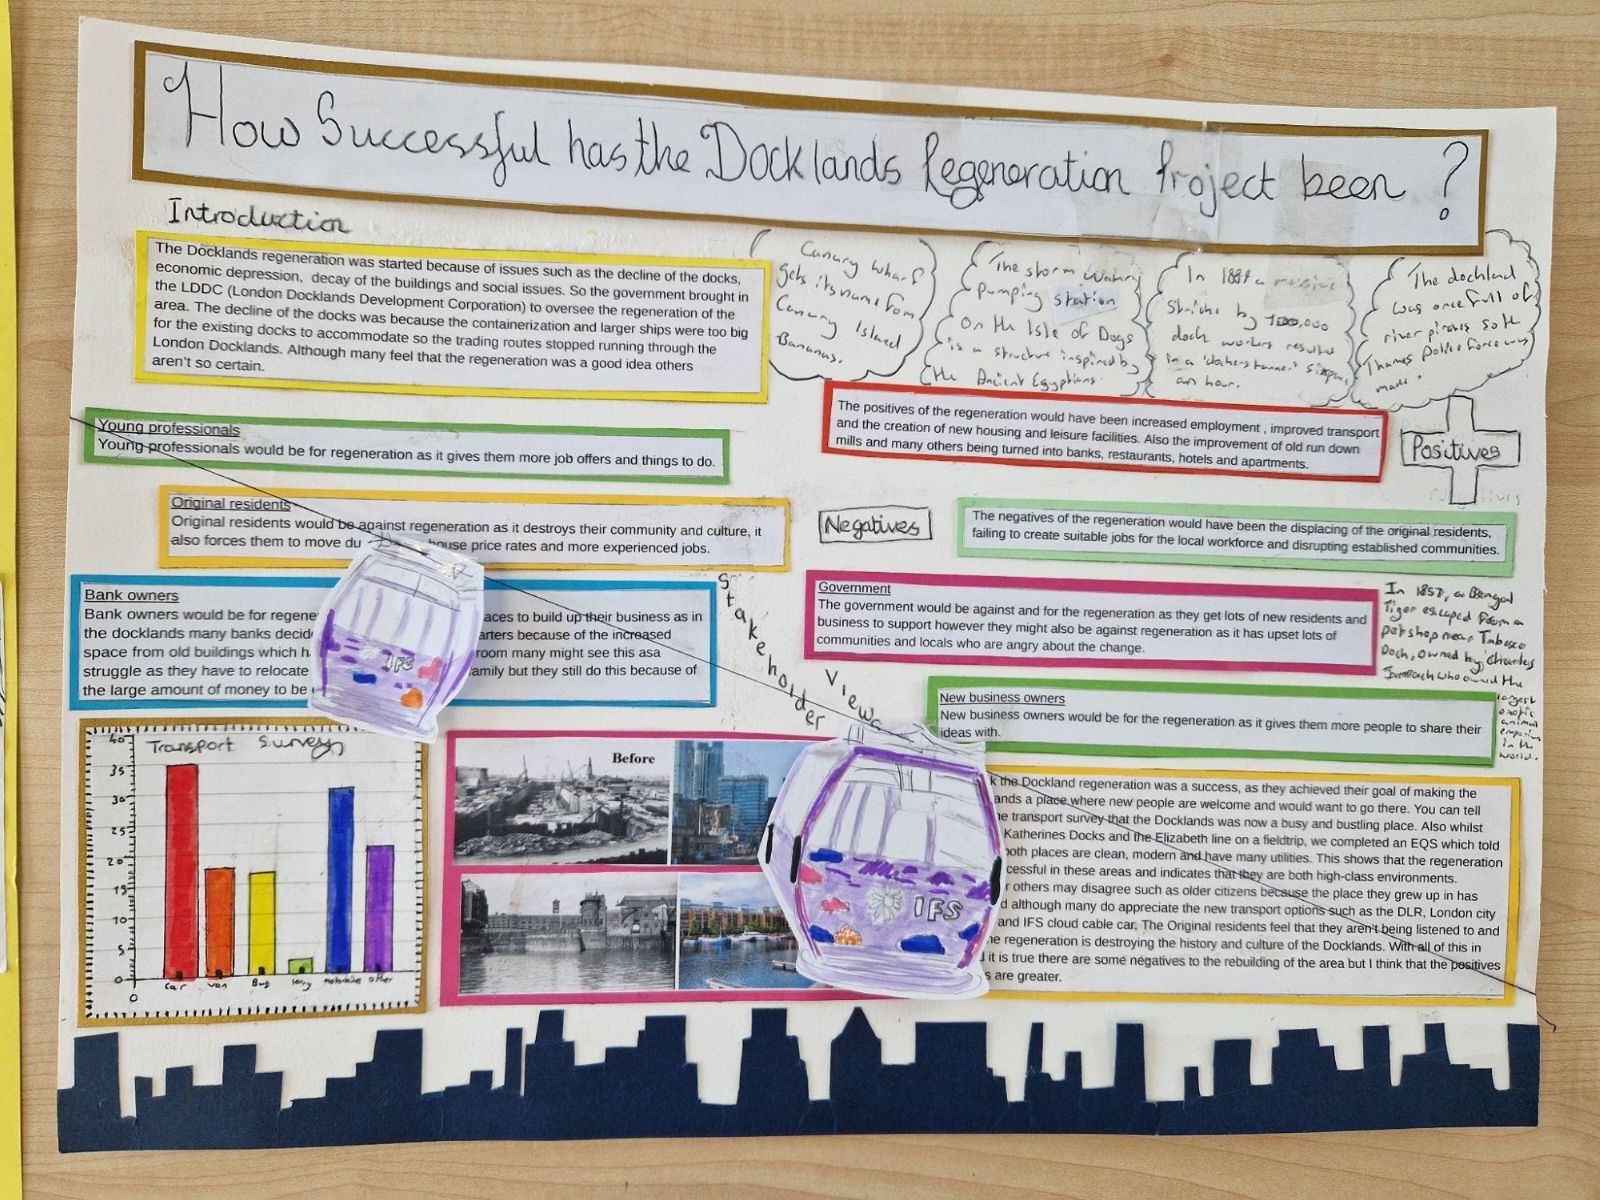 How Successful has the Docklands Regeneration Project been ?
Introduction
The Docklands regeneration was started because of issues such as the decline of the docks,
economic depression, decay of the buildings and social issues. So the government brought in
the LDDC (London Docklands Development Corporation) to oversee the regeneration of the
area. The decline of the docks was because the containerization and larger ships were too big
for the existing docks to accommodate so the trading routes stopped running through the
London Docklands. Although many feel that the regeneration was a good idea others
aren't so certain.
Canary wharf
gets its name from
Canary Island
Bananas.
The storm
pumping station
On the Isle of Dogs
is a structure inspired by
the Ancient Egyptians.
In a massive
by
dock workers resulted
in a
an hour.
The dockland
was once full of
river pirates so the
Thames Police force was
made.
The positives of the regeneration would have been increased employment , improved transport
and the creation of new housing and leisure facilities. Also the improvement of old run down
mills and many others being turned into banks, restaurants, hotels and apartments.
Positives
Young professionals
Young professionals would be for regeneration as it gives them more job offers and things to do.
Original residents
Original residents would be against regeneration as it destroys their community and culture, it
also forces them to move du house price rates and more experienced jobs.
Negatives
The negatives of the regeneration would have been the displacing of the original residents,
failing to create suitable jobs for the local workforce and disrupting established communities.
Bank owners
Bank owners would be for regene aces to build up their business as in
the docklands many banks decid arters because of the increased
space from old buildings which h room many might see this asa
struggle as they have to relocate family but they still do this because of
the large amount of money to be
Stakeholder Views
Government
The government would be against and for the regeneration as they get lots of new residents and
business to support however they might also be against regeneration as it has upset lots of
communities and locals who are angry about the change.
In 1857, a Bengal
Tiger escaped from a
pet shop near Tobacco
Dock, owned by Charles
Jamrach who owned the
largest
exotic
animal
emporium
in the
world.
New business owners
New business owners would be for the regeneration as it gives them more people to share their
ideas with.
IFS
Transport Survey
40
35
30
25
20
15
10
5
0
0
car van Bus lorry motorbike other
Before
IFS
k the Dockland regeneration was a success, as they achieved their goal of making the
ands a place where new people are welcome and would want to go there. You can tell
he transport survey that the Docklands was now a busy and bustling place. Also whilst
Katherines Docks and the Elizabeth line on a fieldtrip, we completed an EQS which told
both places are clean, modern and have many utilities. This shows that the regeneration
cessful in these areas and indicates that they are both high-class environments.
r others may disagree such as older citizens because the place they grew up in has
d although many do appreciate the new transport options such as the DLR, London city
and IFS cloud cable car. The Original residents feel that they aren't being listened to and
he regeneration is destroying the history and culture of the Docklands. With all of this in
d it is true there are some negatives to the rebuilding of the area but I think that the positives
s are greater.